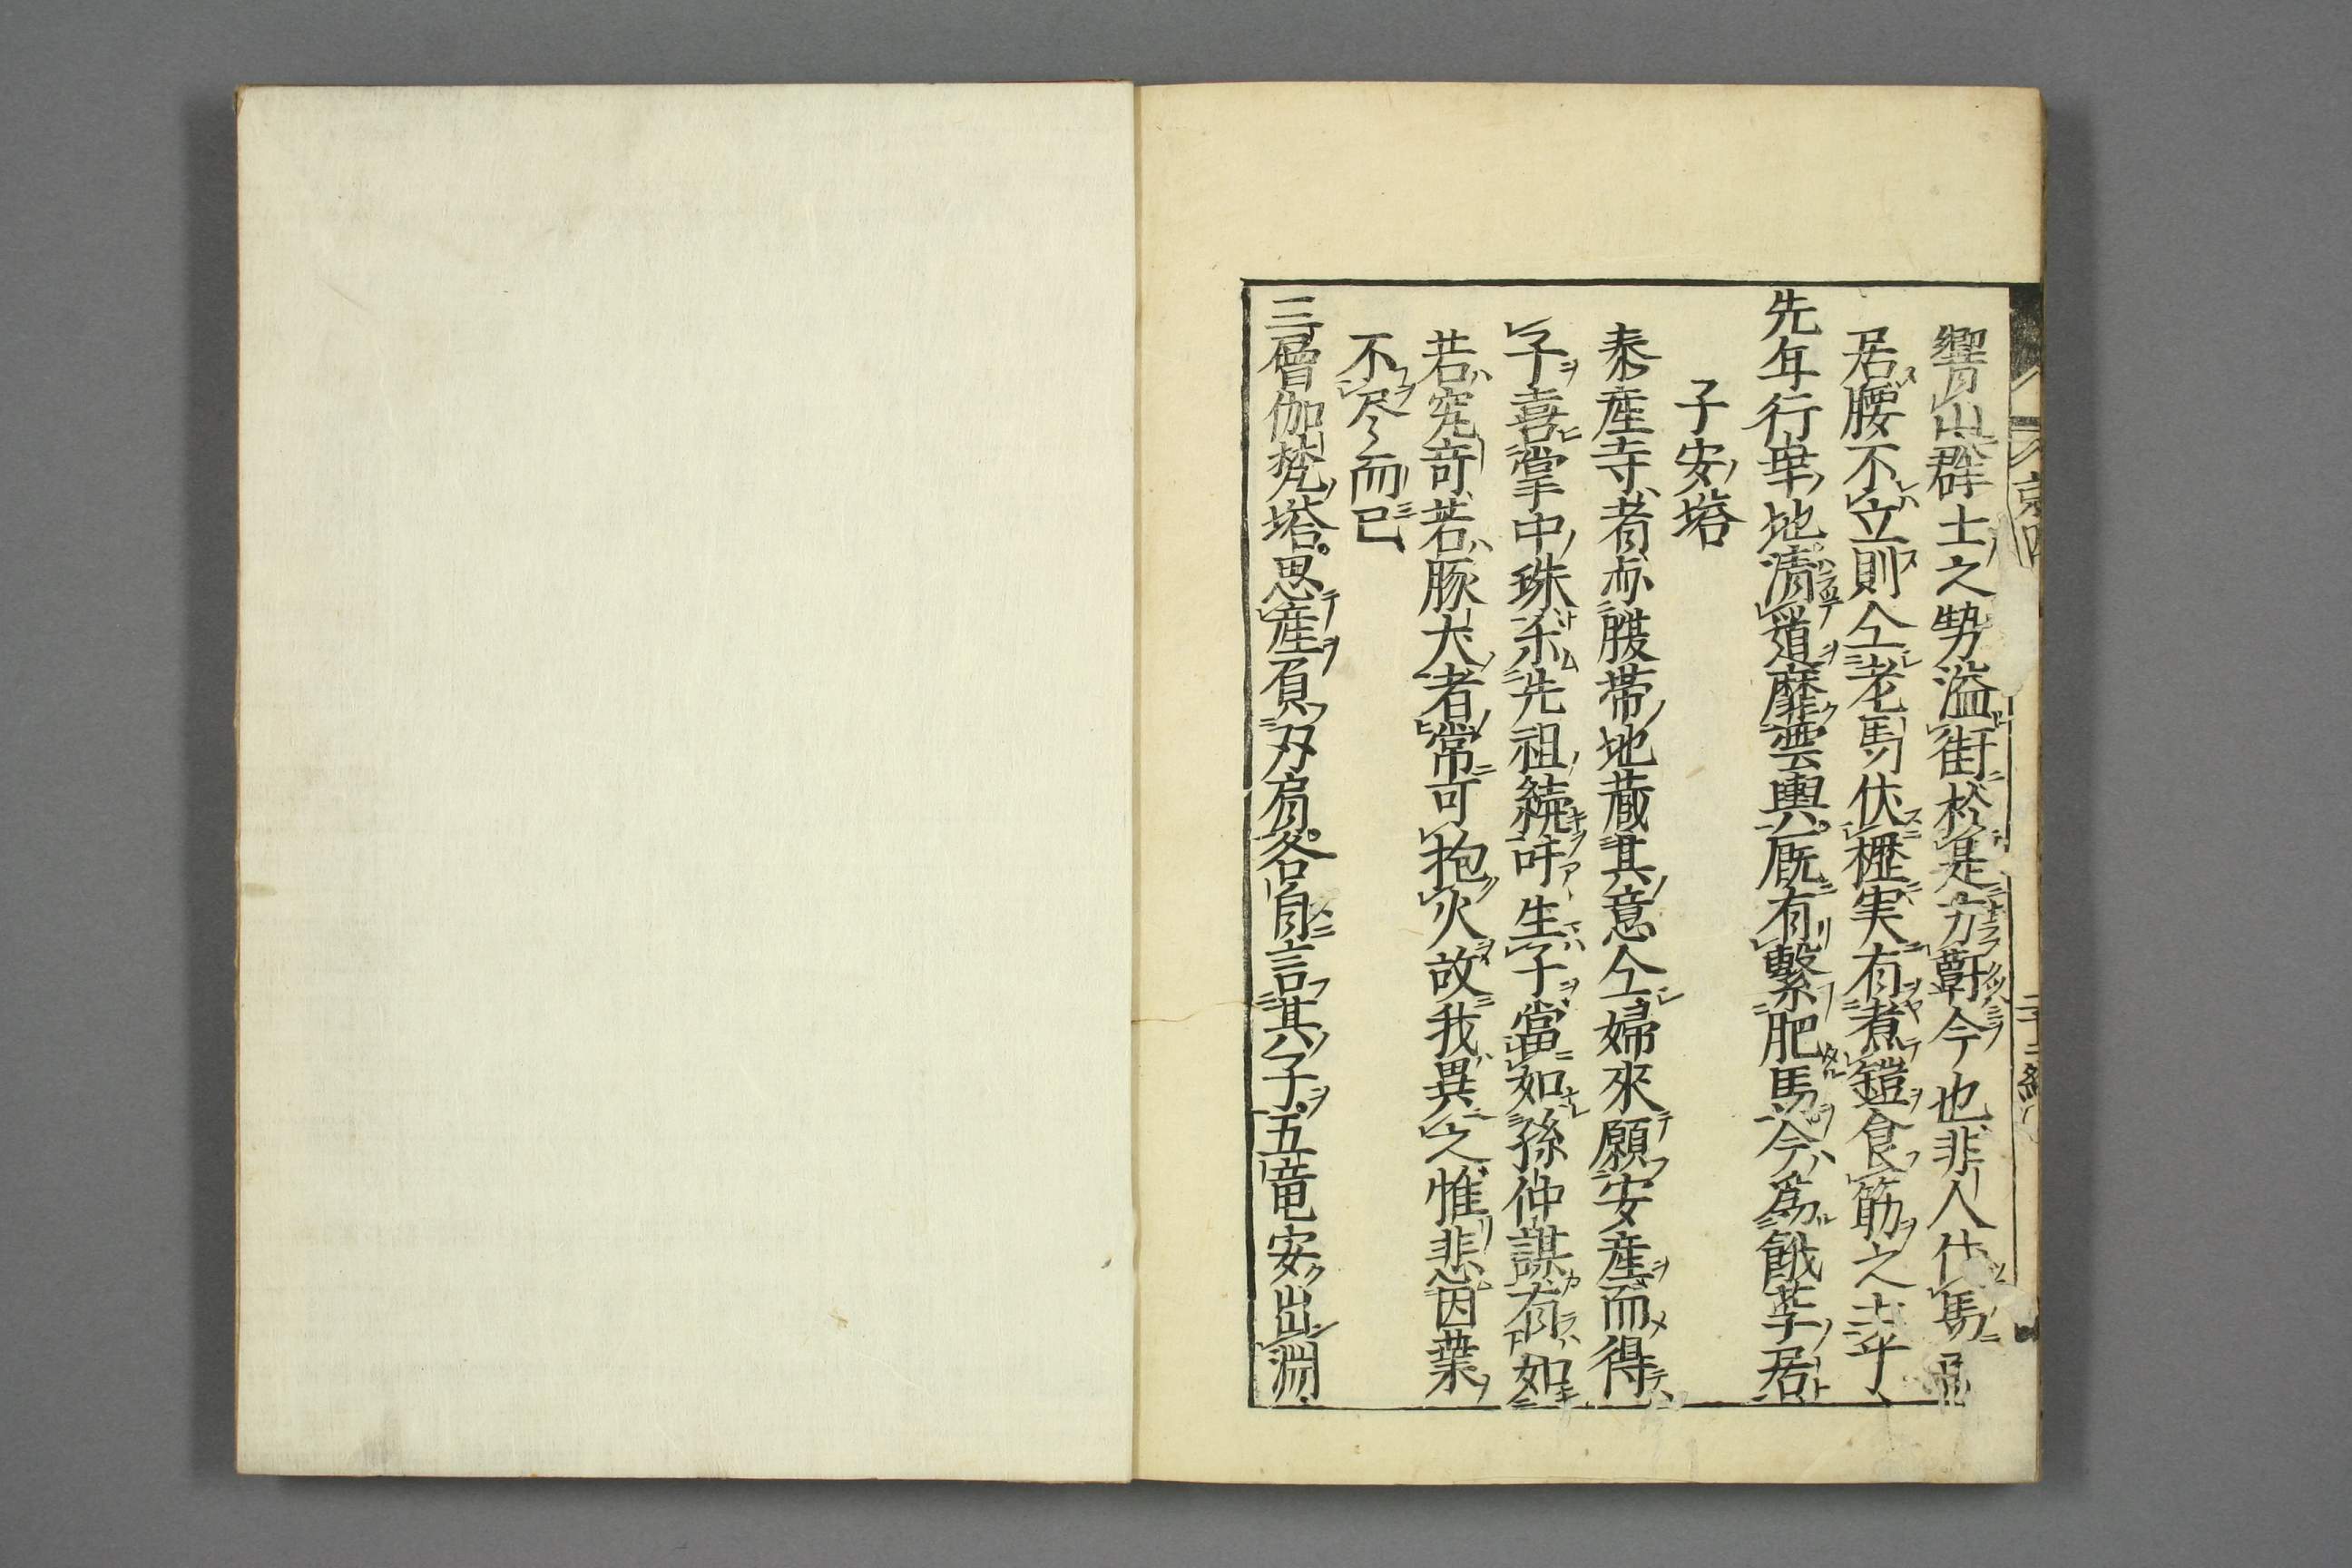 響山群士之勢溢街於是方斮今也非人仕馬
居腰不立則仝老馬伏櫪実有煮鎧食筋之志乎
先年行幸地清道靡雲輿厩有繋肥馬今為餓莩居
子安塔
泰産寺者亦腹帯地蔵其意仝婦來願安産而得
子喜掌中珠永先祖続吁生子當如孫仲謀有如
若究奇若豚犬者常可抱火故我異之惟悲因業
不尽而已
三層伽梵塔思産負双肩各自言其子五竜安出淵